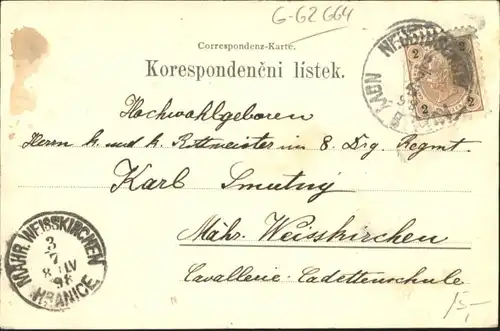 G-62664
Correspondenz-Karte.
Korespondenční lístek.
2 2
2 2
Hochwohlgeboren
Herrn k. und k. Rittmeister im 8. Drg. Regmt.
Karl Smutný
Mähr. Weisskirchen
Cavallerie-Cadettenschule
MÄHR. WEISSKIRCHEN
3
7
98
HRANICE